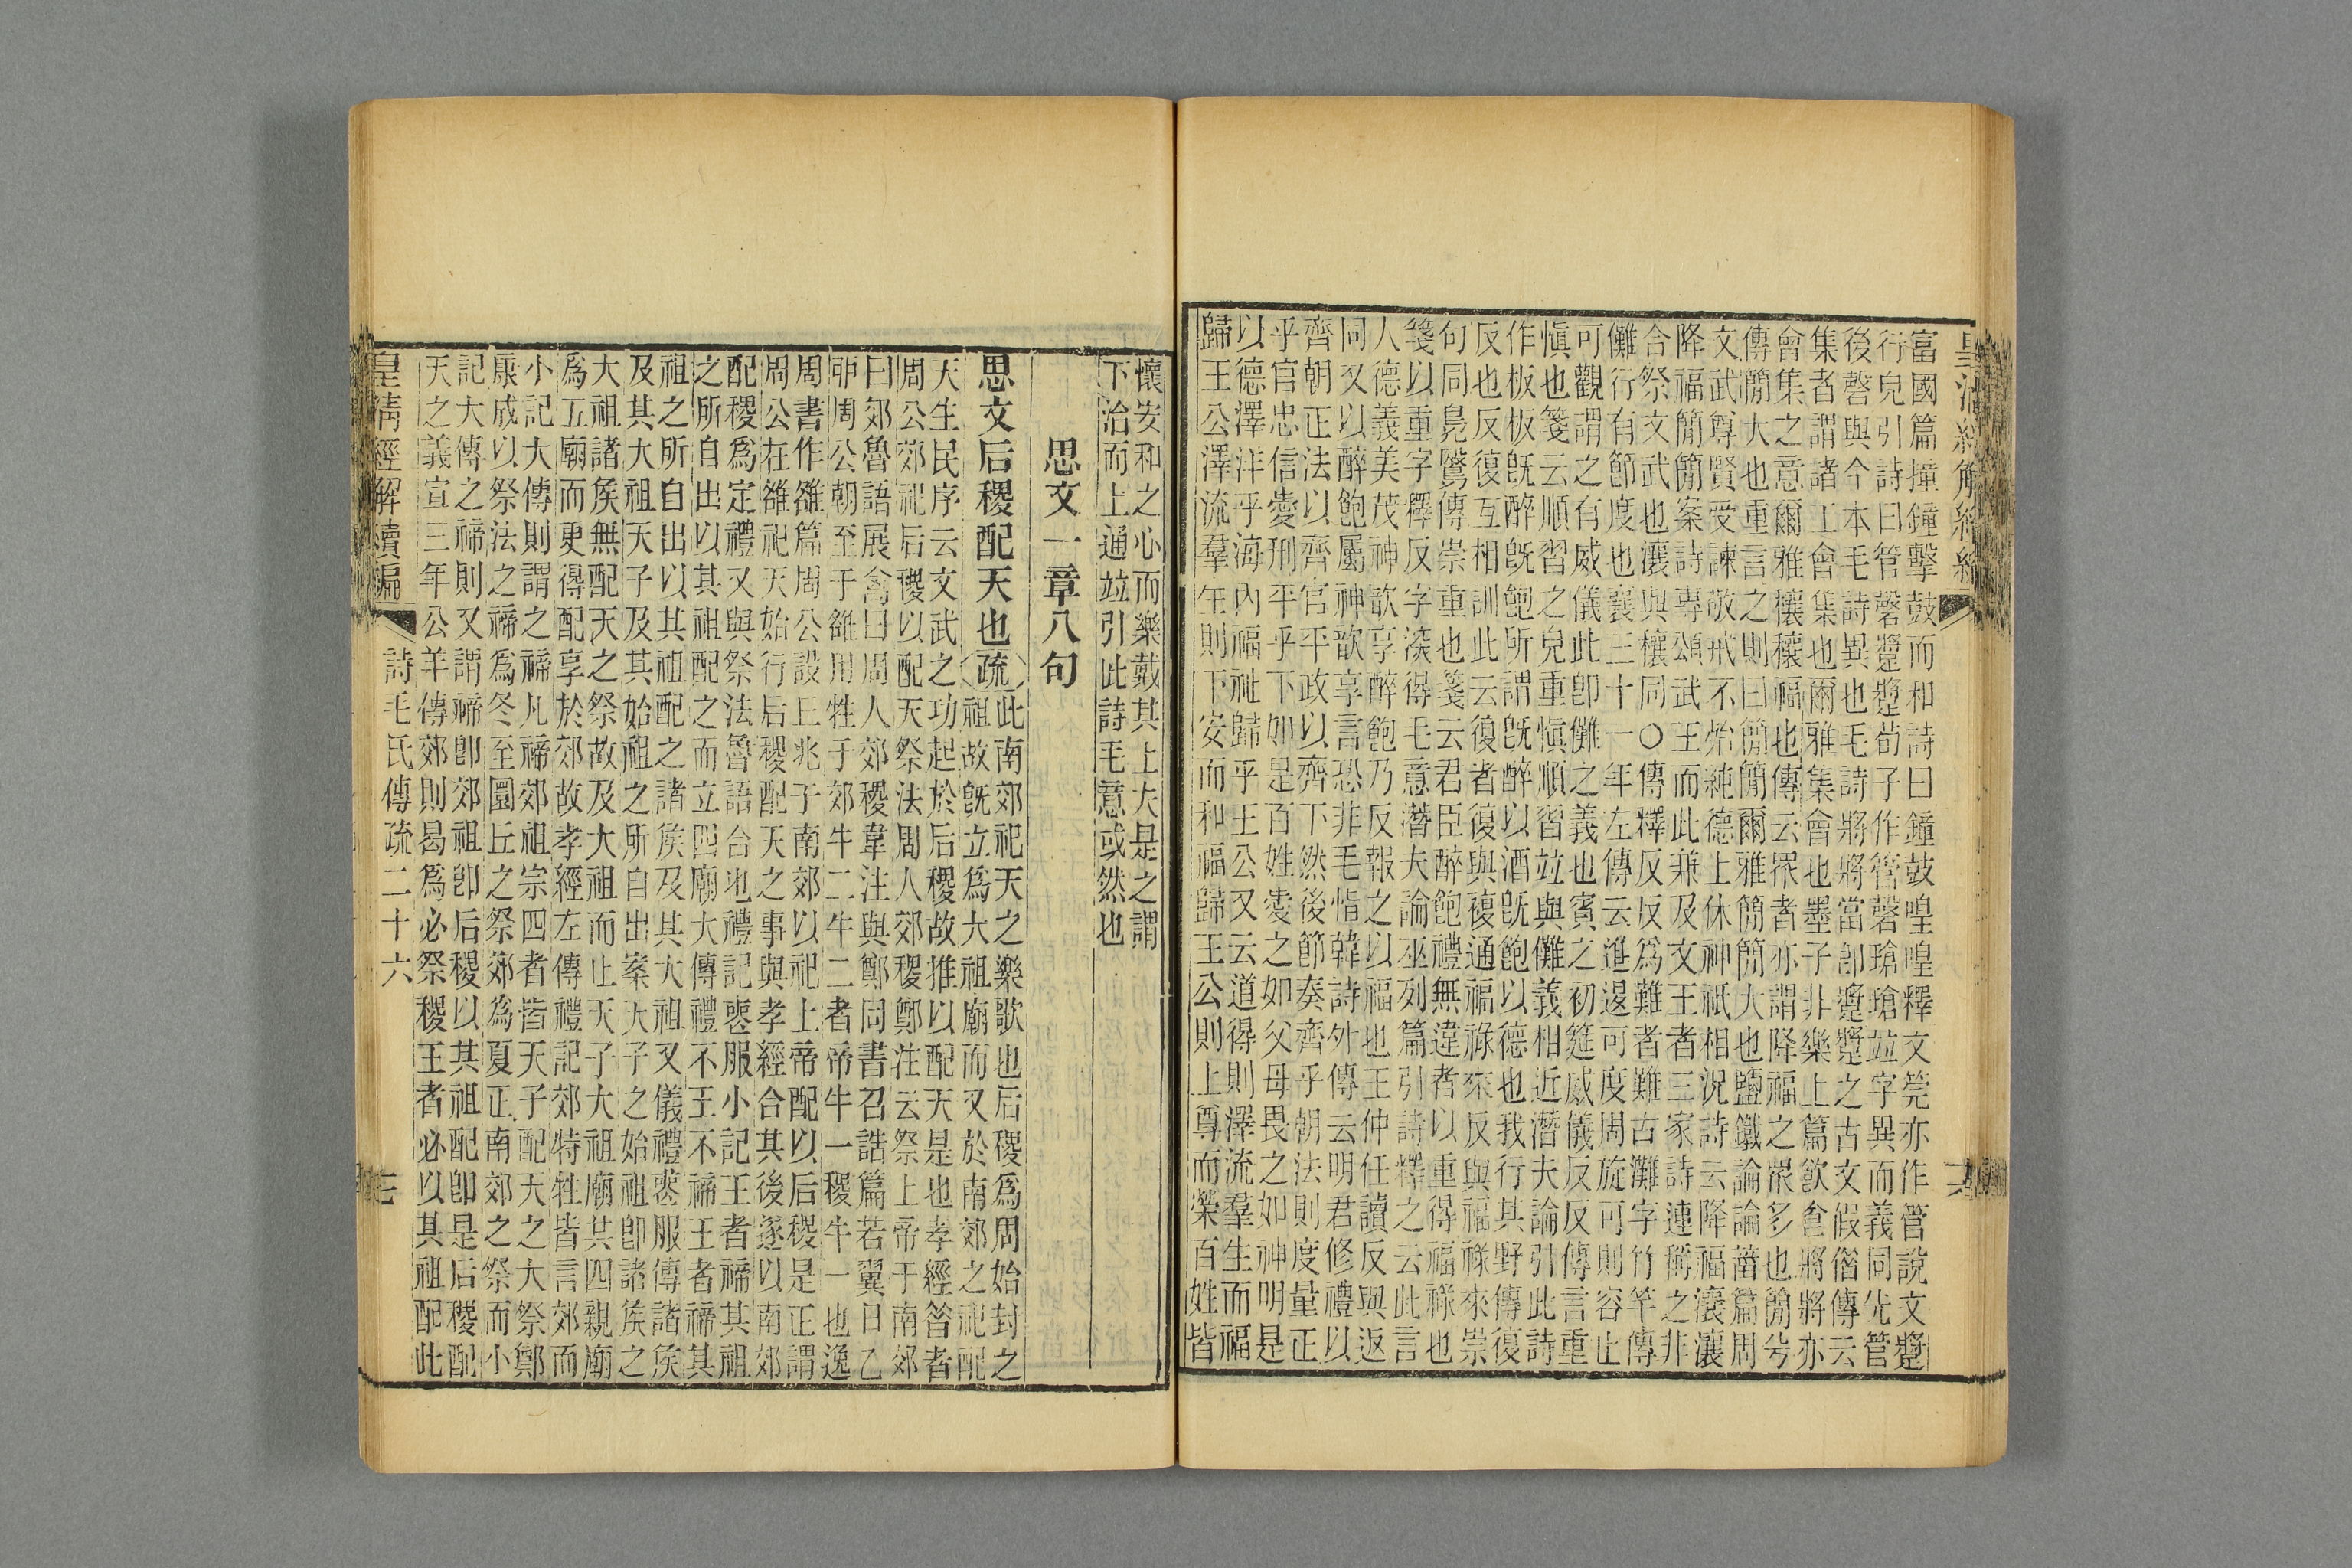 富國篇撞鐘擊鼓而和詩曰鐘鼓喤喤釋文筦亦作管說文䥣
行皃引詩曰管磬䥣䥣荀子作管磬瑲瑲竝字異而義同先管
後磬與今本毛詩異也毛詩將將當卽䥣䥣之古文假偺傳云
集者謂諸工會集也爾雅集會也墨子非樂上篇飮食將將亦
會集之意爾雅穰穰福也傳云眾者亦謂降福之眾多也𥳑兮
傳𥳑大也重言之則曰𥳑𥳑爾雅𥳑𥳑大也鹽鐵論論菑篇周
文武尊賢受諫敬戒不殆純德上休神祇相況詩云降福瀼瀼
降福簡簡案詩專頌武王而此兼及文王者三家詩連稱之非
合祭文武也瀼與穰同〇傳釋反反爲難者難古灘字竹竿傳
儺行有節度也襄三十一年左傳云進退可度周旋可則容止
可觀謂之有威儀此卽儺之義也賓之初筵威儀反反傳言重
愼也箋云順習之皃重愼順習竝與儺義相近潛夫論引此詩
作板板旣醉旣飽所謂旣醉以酒旣飽以德也我行其野傳復
反也反復互相訓此云復者復與複通福祿來反與福祿來崇
句同鳧鷖傳崇重也箋云君臣醉飽禮無違者以重得福祿也
箋以重字釋反字湥得毛意潛夫論巫列篇引詩釋之云此言
人德義美茂神歆享醉飽乃反報之以福也王仲任讀反與返
同又以醉飽屬神歆享言恐非毛恉韓詩外傳云明君修禮以
齊朝正法以齊官平政以齊下然後節奏齊乎朝法則度量正
乎官忠信愛刑平乎下如是百姓愛之如父母畏之如神明是
以德澤洋乎海內福祉歸乎王公又云道得則澤流羣生而福
歸王公澤流羣生則下安而和福歸王公則上尊而榮百姓皆
懷安和之心而樂戴其上夫是之謂
下治而上通竝引此詩毛意或然也
思文一章八句
思文后稷配天也疏此南郊祀天之樂歌也后稷爲周始封之
祖故旣立爲大祖廟而又於南郊之祀配
天生民序云文武之功起於后稷故推以配天是也孝經曰昔者
周公郊祀后稷以配天祭法周人郊稷鄭注云祭上帝于南郊
曰郊魯語展禽曰周人郊稷韋注與鄭同書召誥篇若翼日乙
卯周公朝至于雒用牲于郊牛二牛二者帝牛一稷牛一也逸
周書作雒篇周公設丘兆于南郊以祀上帝配以后稷是正謂
周公在雒祀天始行后稷配天之事與孝經合其後遂以南郊
配稷爲定禮又與祭法魯語合也禮記喪服小記王者禘其祖
之所自出以其祖配之而立四廟大傳禮不王不禘王者禘其
祖之所自出以其祖配之諸侯及其大祖又儀禮喪服傳諸侯
及其大祖天子及其始祖之所自出案天子之始祖卽諸侯之
大祖諸侯無配天之祭故及大祖而止天子大祖廟其四親廟
爲五廟而更得配享於郊故孝經左傳禮記郊特牲皆言郊而
小記大傳則謂之禘凡禘郊祖宗四者皆天子配天之大祭鄭
康成以祭法之禘爲冬至圜丘之祭郊爲夏正南郊之祭而小
記大傳之禘則又謂禘卽郊祖卽后稷以其祖配卽是后稷配
天之義宣三年公羊傳郊則曷爲必祭稷王者必以其祖配此
皇淸經解續編 詩毛氏傳疏二十六